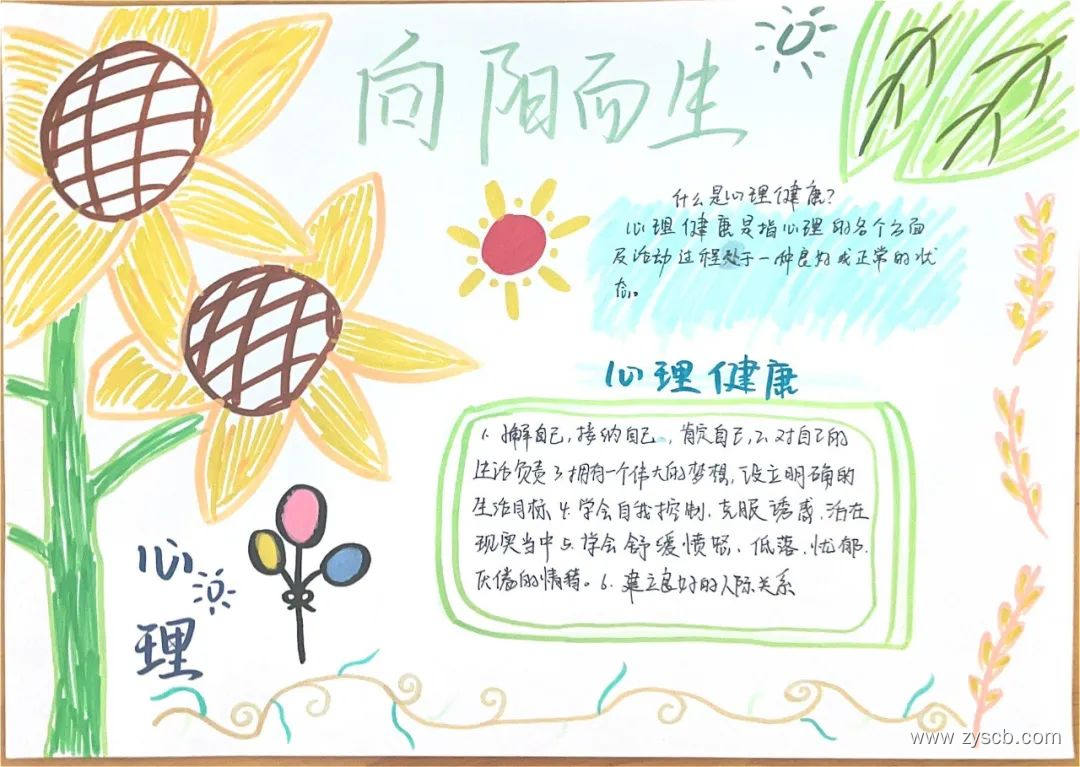 向阳而生
什么是心理健康?
心理健康是指心理的各个方面
及活动过程处于一种良好或正常的状
态。
心理健康
1、了解自己,接纳自己,肯定自己,2、对自己的
生活负责3、拥有一个伟大的梦想,设立明确的
生活目标、4、学会自我控制、克服诱惑、活在
现实当中5、学会舒缓愤怒、低落、忧郁、
厌倦的情绪。6、建立良好的人际关系
心
理
www.zyscb.com